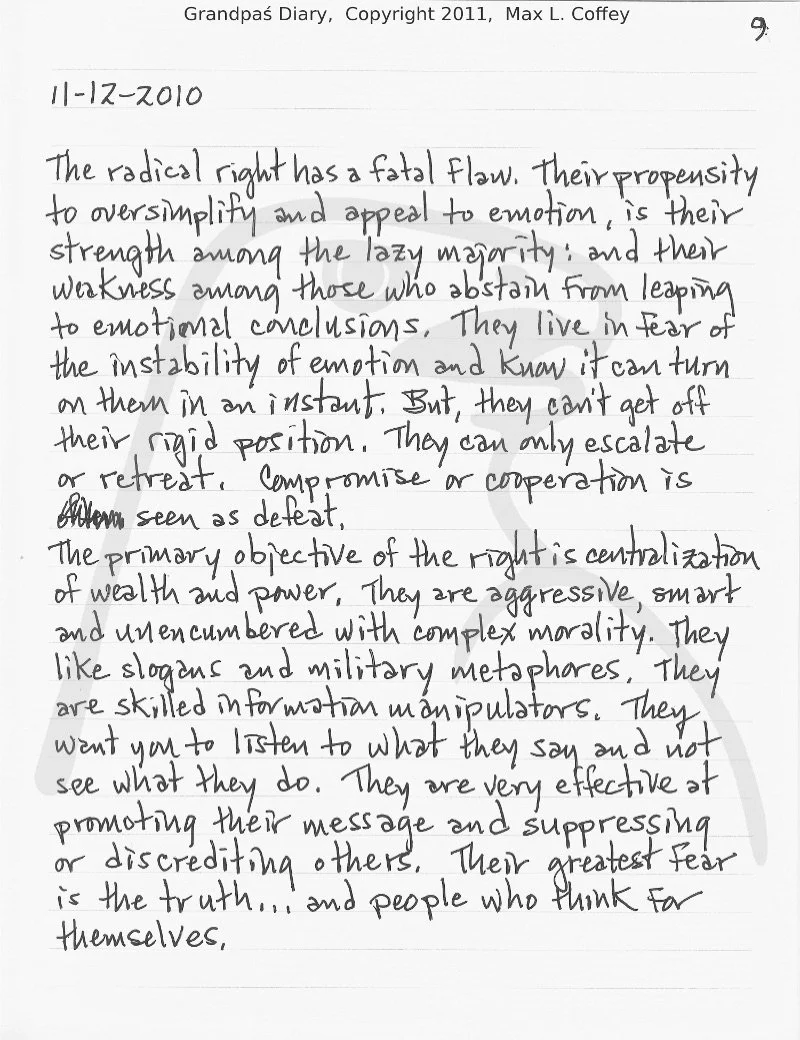 Grandpaś Diary, Copyright 2011, Max L. Coffey
9
11-12-2010
The radical right has a fatal flaw. Their propensity
to oversimplify and appeal to emotion, is their
strength among the lazy majority; and their
weakness among those who abstain from leaping
to emotional conclusions. They live in fear of
the instability of emotion and know it can turn
on them in an instant. But, they can't get off
their rigid position. They can only escalate
or retreat. Compromise or cooperation is
seen as defeat.
The primary objective of the right is centralization
of wealth and power. They are aggressive, smart
and unencumbered with complex morality. They
like slogans and military metaphores. They
are skilled information manipulators. They
want you to listen to what they say and not
see what they do. They are very effective at
promoting their message and suppressing
or discrediting others. Their greatest fear
is the truth... and people who think for
themselves.